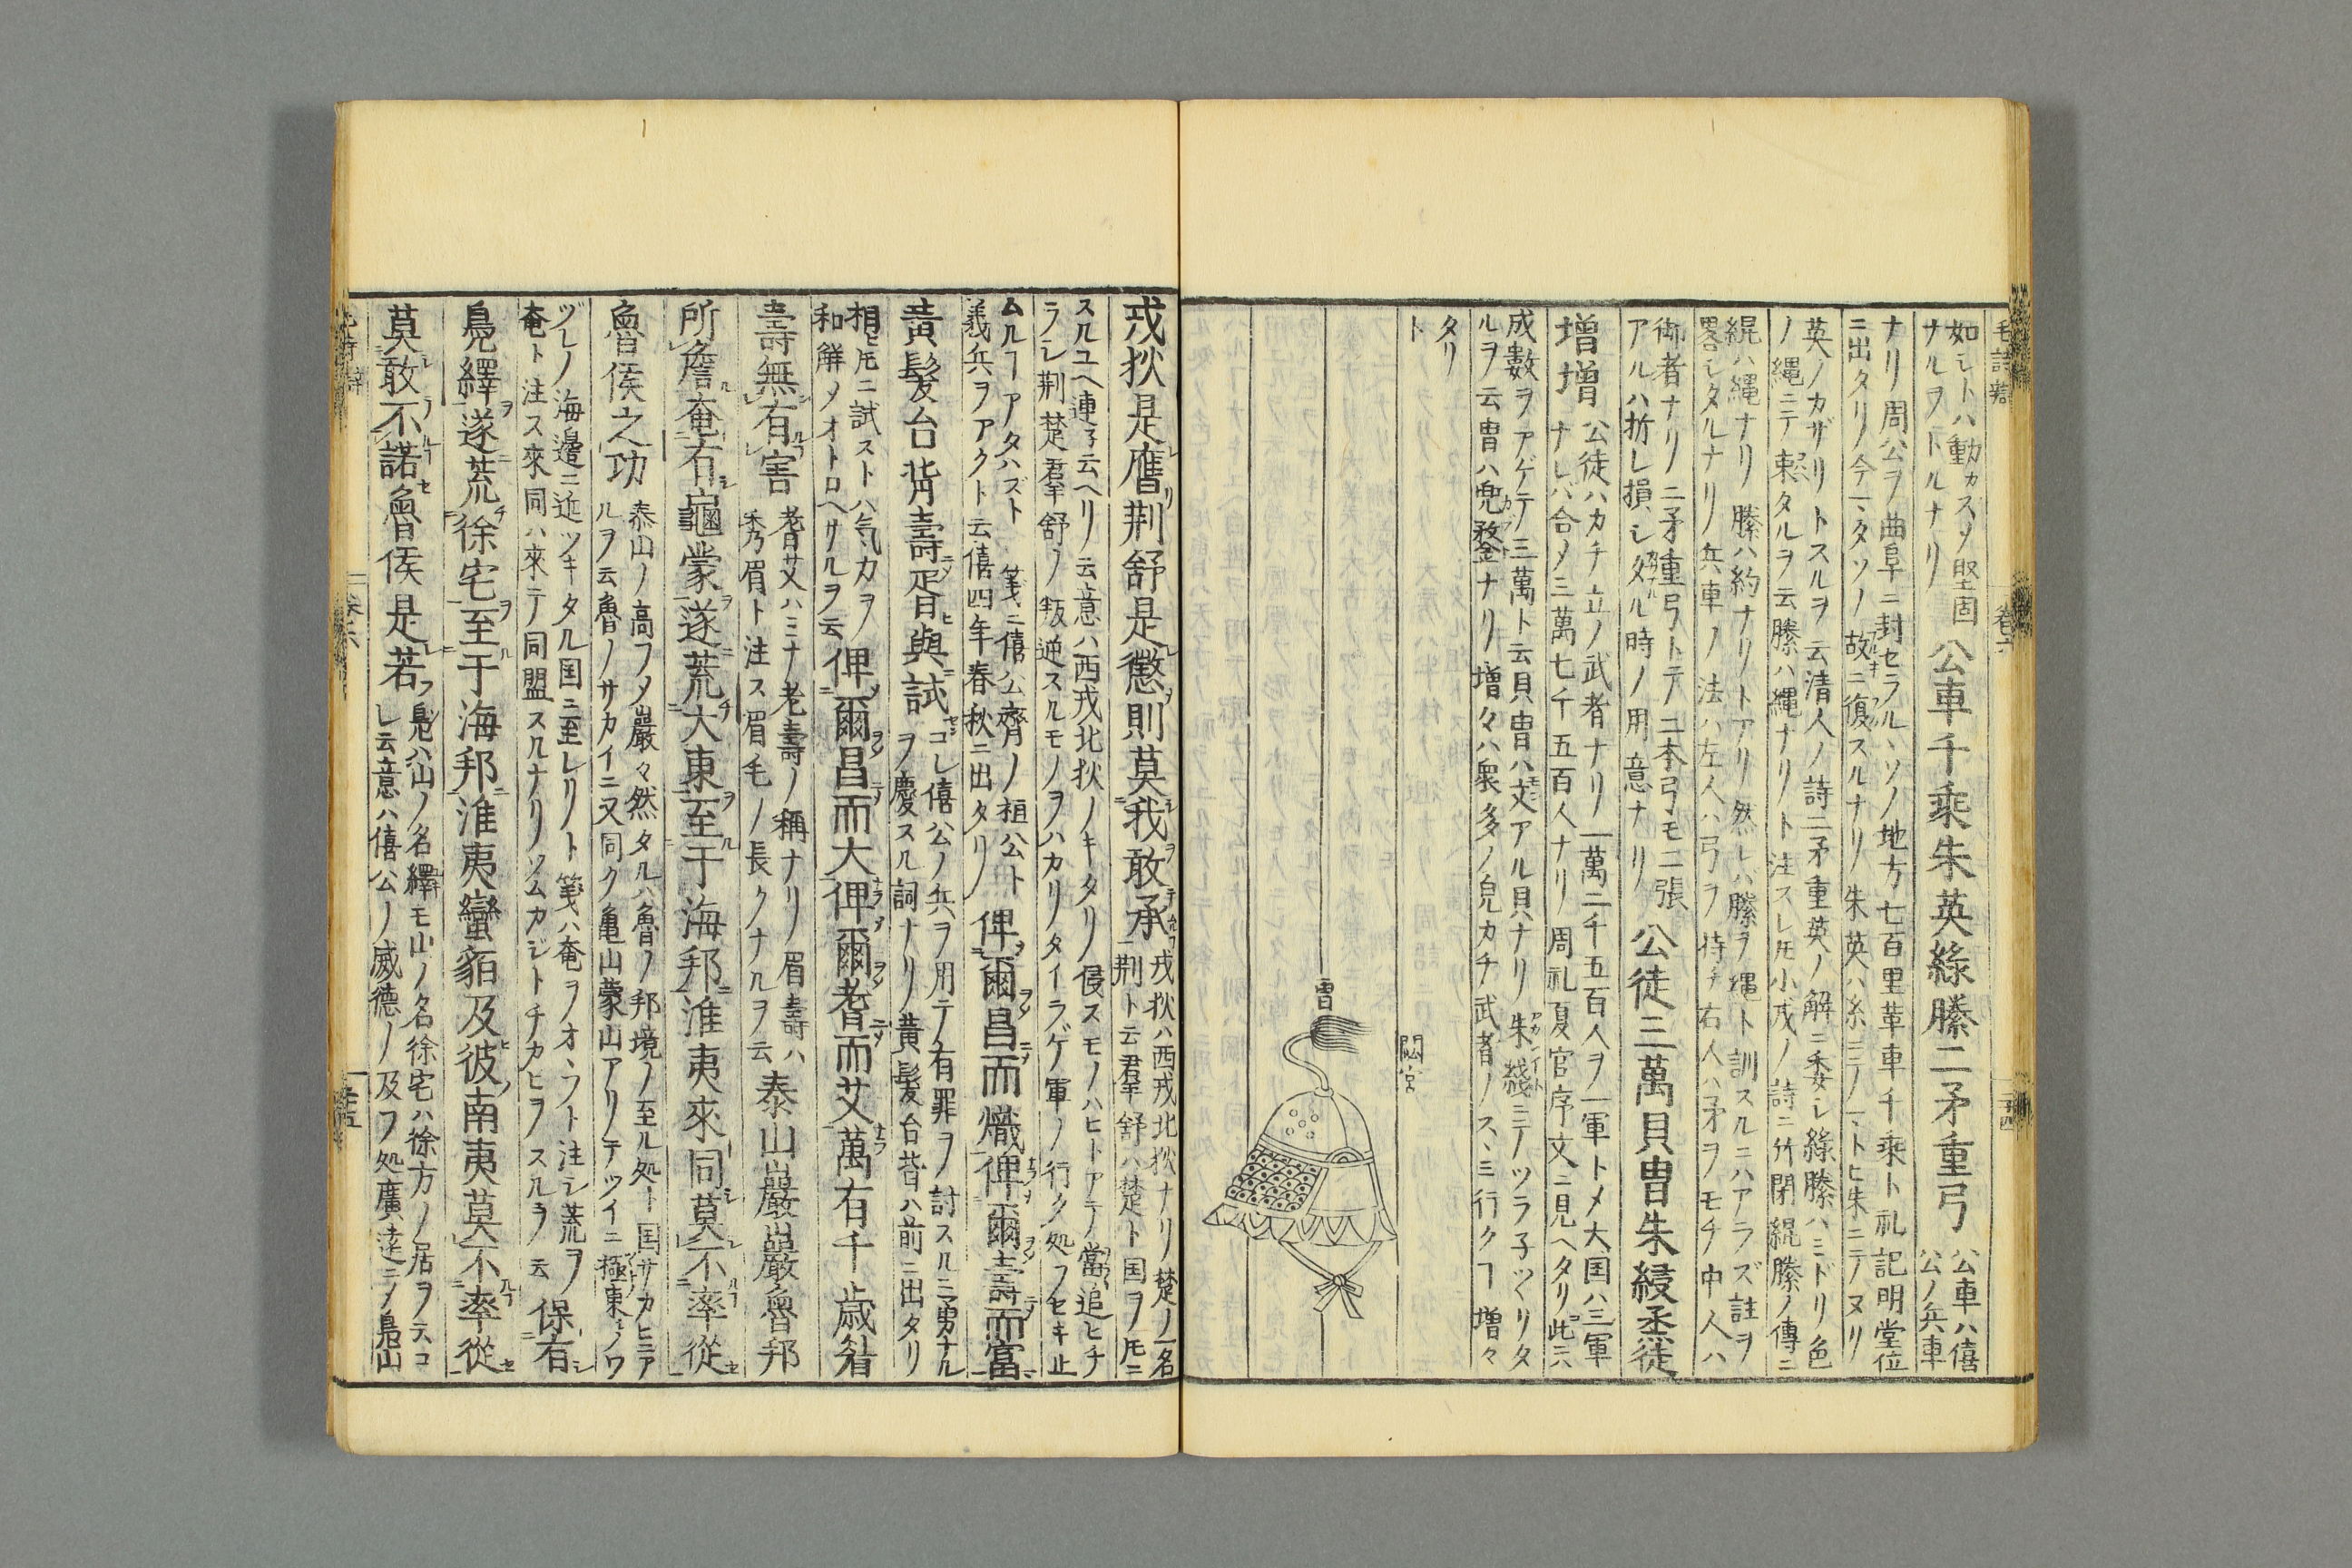 如シトハ動カスメ堅固
ナルヲトルナリ
公車千乘朱英綠縢二矛重弓
公車ハ僖
公ノ兵車
ナリ周公ヲ曲阜ニ封セラルヽソノ地方七百里革車千乘ト礼記明堂位
ニ出タリ今一タソノ故ニ復スルナリ朱英ハ糸ニノヽトヒ朱ニテヌリ
英ノカザリトスルヲ云清人ノ詩二矛重英ノ解ニ委シ綠縢ハミドリ色
ノ縄ニテ束タルヲ云縢ハ縄ナリト注スレ𪜈小戎ノ詩ニ竹閉緄縢ノ傳ニ
緄ハ縄ナリ縢ハ約ナリトアリ然レハ縢ヲ縄ト訓スルニハアラズ註ヲ
畧シタルナリ兵車ノ法ハ左人ハ弓ヲ持チ右人ハ矛ヲモチ中人ハ
御者ナリ二矛重弓トテ二本弓モ二張
アルハ折レ損シタル時ノ用意ナリ
公徒三萬貝冑朱綅烝徒
增增
公徒ハカチ立ノ武者ナリ一萬二千五百人ヲ一軍トメ大国ハ三軍
ナレバ合メ三萬七千五百人ナリ周礼夏官序文ニ見ヘタリ此ニ六
成數ヲアゲテ三萬ト云貝冑ハ文アル貝ナリ朱綅ニテツラ子ツヽリタ
ルヲ云冑ハ兜鍪ナリ増々ハ衆多ノ皃カチ武者ノスヽミ行クヿ増々
タリ
ト
閟宮
冑
戎狄是膺荆舒是懲則莫我敢承
戎狄ハ西戎北狄ナリ楚ノ一名
荆ト云羣舒ハ楚ト国ヲ𪜈ニ
スルユヘ連子云ヘリ云意ハ西戎北狄ノキタリ侵スモノハヒトアテノ當追ヒチ
ラシ荆楚羣舒ノ叛逆スルモノヲハカリノタイラゲ軍ノ行ク処フセキ止
ムルヿアタハズト箋ニ僖公齊ノ桓公ト
義兵ヲアクト云僖四年春秋ニ出タリ
俾爾昌而熾俾爾壽而富
黃髮台背壽胥與試
コレ僖公ノ兵ヲ用テ有罪ヲ討スルニ勇ナル
ヲ慶スル詞ナリ黃髮台背ハ前ニ出タリ
相ヒ𪜈ニ試ストハ気力ヲ
和解メオトロヘサルヲ云
俾爾昌而大俾爾耆而艾萬有千歲眉
壽無有害
耆艾ハミナ老壽ノ稱ナリ眉壽ハ
秀眉ト注ス眉毛ノ長クナルヲ云
泰山巖巖魯邦
所詹奄有龜蒙遂荒大東至于海邦淮夷來同莫不率從
魯侯之功
泰山ノ高フメ巖々然タルハ魯ノ邦境ノ至ル処ト国サカヒニア
ルヲ云魯ノサカイニ又同ク亀山蒙山アリテツイニ極東ノワ
ヅレノ海邊ニ近ツキタル国ニ至レリト箋ハ奄ヲオヽフト注シ荒ヲ
奄ト注ス來同ハ來テ同盟スルナリソムカジトチカヒヲスルヲ云
保有
鳧繹遂荒徐宅至于海邦淮夷蠻貊及彼南夷莫不率從
莫敢不諾魯侯是若
鳧ハ山ノ名繹モ山ノ名徐宅ハ徐方ノ居ヲ云コ
レ云意ハ僖公ノ威徳ノ及フ処廣遠ニノ鳧山